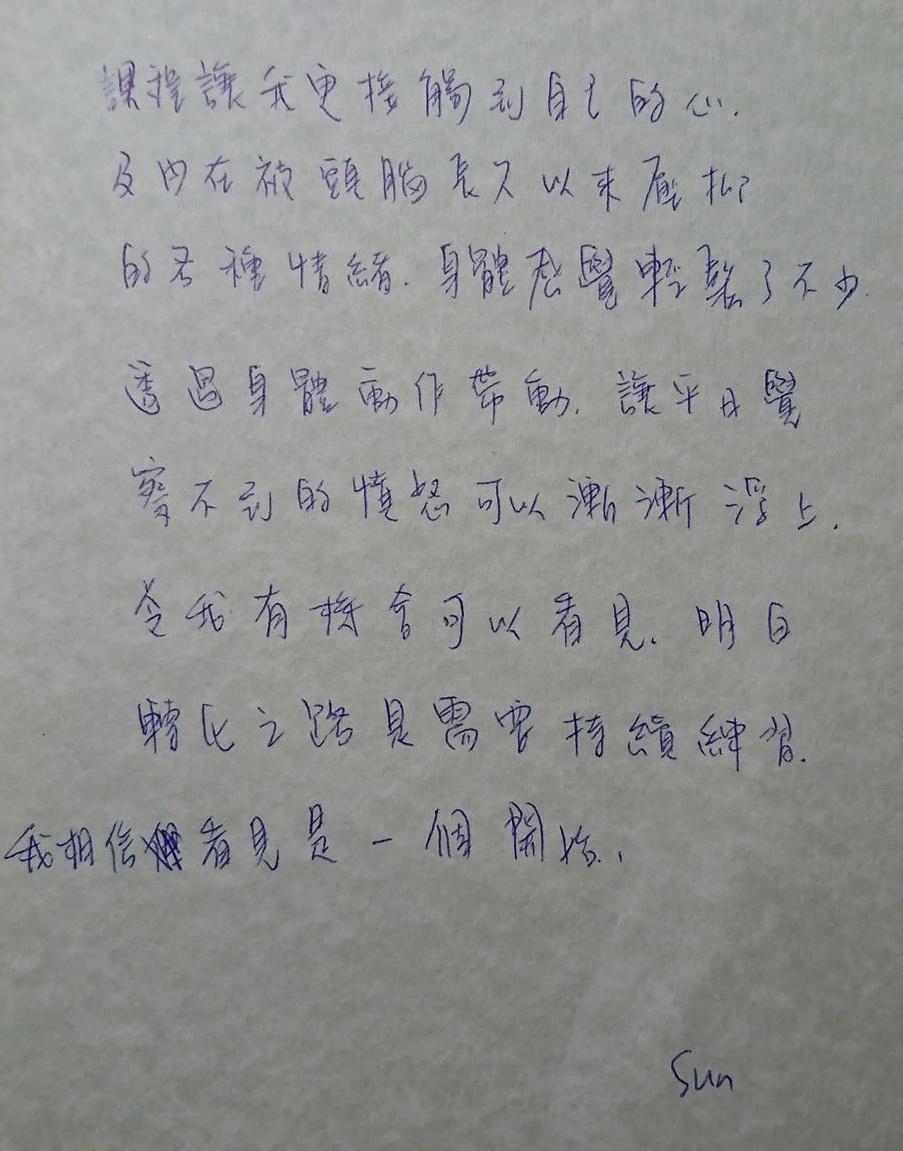 課程讓我更接觸到自己的心.
及內在被頭腦長久以來壓抑
的各種情緒. 身體感覺輕鬆了不少.
透過身體動作帶動. 讓平日覺
察不到的憤怒可以漸漸浮上.
令我有機會可以看見. 明白
轉化之路是需要持續練習.
我相信看見是一個開始.
Sun